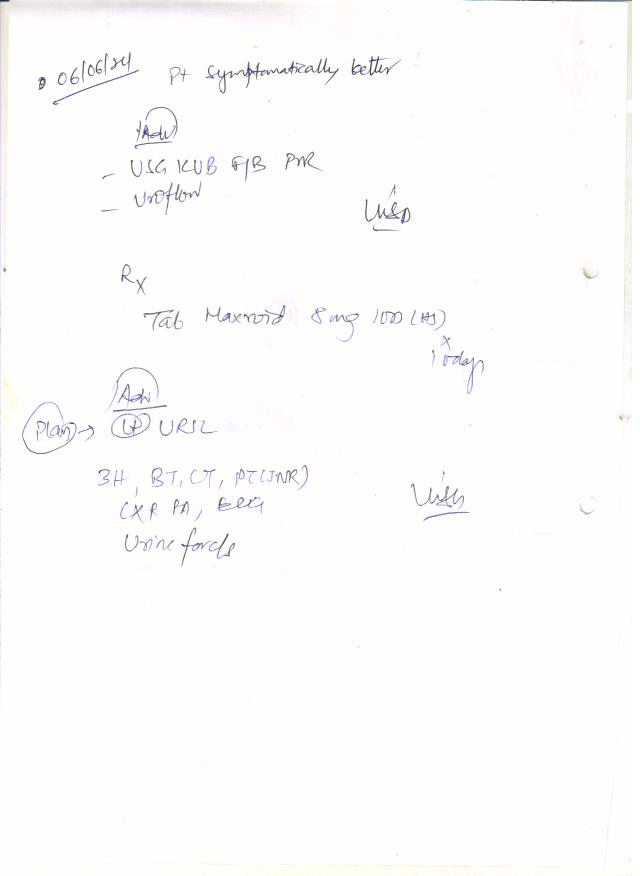 06/06/24 Pt symptomatically better
Adv
- USG KUB F/B PVR
- Uroflow
Rx
Tab Maxroid 8 mg 1OD (HS)
x
10 days
Adv
Plan → (Lt) URSL
3H, BT, CT, PT(INR)
CXR PA, ECG
Urine for c/s